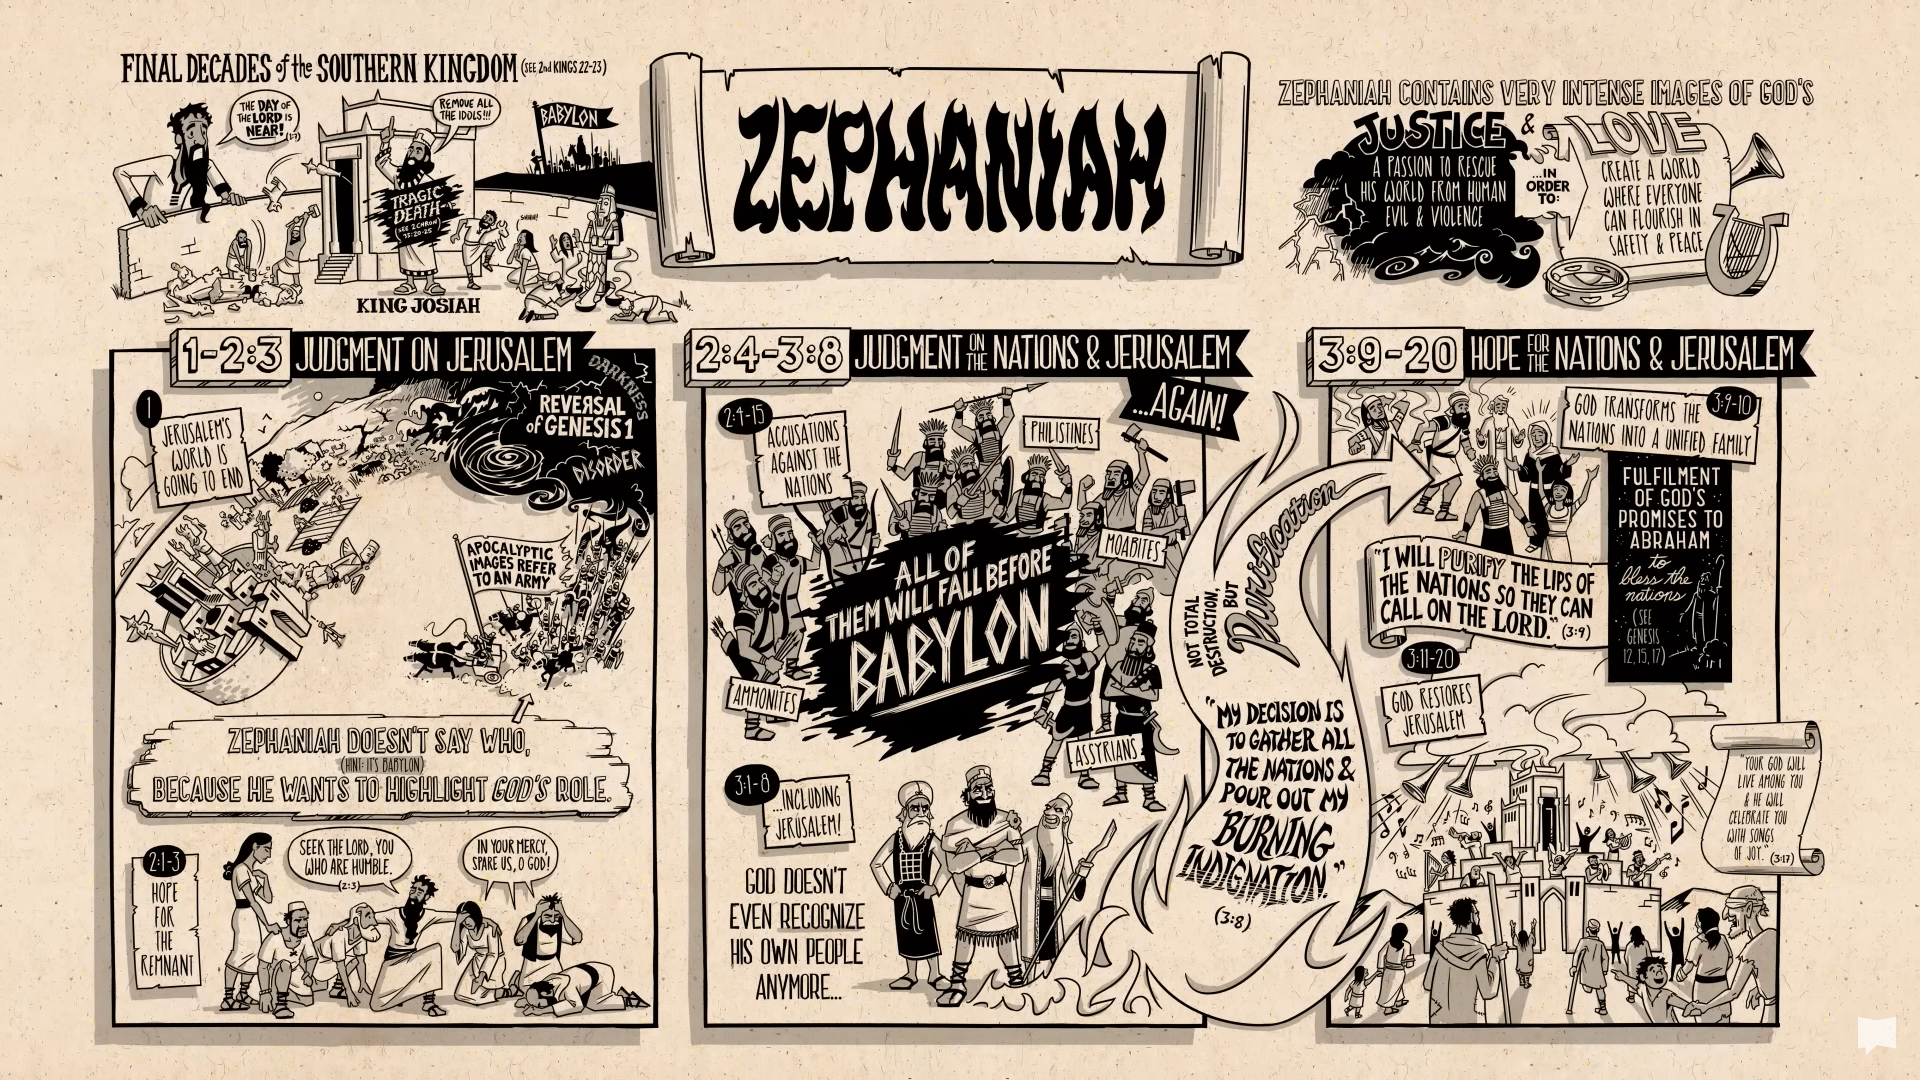 FINAL DECADES of the SOUTHERN KINGDOM (SEE 2nd KINGS 22-23)
THE DAY OF
THE LORD IS
NEAR!
(1:7)
REMOVE ALL
THE IDOLS!!!
BABYLON
TRAGIC
DEATH
(SEE 2 CHRON
35:20-25)
SHHHH!
KING JOSIAH
ZEPHANIAH
ZEPHANIAH CONTAINS VERY INTENSE IMAGES OF GOD'S
JUSTICE & LOVE
A PASSION TO RESCUE
HIS WORLD FROM HUMAN
EVIL & VIOLENCE
...IN
ORDER
TO:
CREATE A WORLD
WHERE EVERYONE
CAN FLOURISH IN
SAFETY & PEACE
1-2:3 JUDGMENT ON JERUSALEM
1
JERUSALEM'S
WORLD IS
GOING TO END
DARKNESS
REVERSAL
of GENESIS 1
DISORDER
APOCALYPTIC
IMAGES REFER
TO AN ARMY
ZEPHANIAH DOESN'T SAY WHO,
(HINT: IT'S BABYLON)
BECAUSE HE WANTS TO HIGHLIGHT GOD'S ROLE.
2:1-3
HOPE
FOR
THE
REMNANT
SEEK THE LORD, YOU
WHO ARE HUMBLE.
(2:3)
IN YOUR MERCY,
SPARE US, O GOD!
2:4-3:8 JUDGMENT ON THE NATIONS & JERUSALEM
...AGAIN!
2:4-15
ACCUSATIONS
AGAINST THE
NATIONS
PHILISTINES
MOABITES
AMMONITES
ASSYRIANS
ALL OF
THEM WILL FALL BEFORE
BABYLON
3:1-8
...INCLUDING
JERUSALEM!
GOD DOESN'T
EVEN RECOGNIZE
HIS OWN PEOPLE
ANYMORE...
NOT TOTAL
DESTRUCTION,
BUT
Purification
"MY DECISION IS
TO GATHER ALL
THE NATIONS &
POUR OUT MY
BURNING
INDIGNATION."
(3:8)
3:9-20 HOPE FOR THE NATIONS & JERUSALEM
GOD TRANSFORMS THE
NATIONS INTO A UNIFIED FAMILY
3:9-10
"I WILL PURIFY THE LIPS OF
THE NATIONS SO THEY CAN
CALL ON THE LORD." (3:9)
FULFILMENT
OF GOD'S
PROMISES TO
ABRAHAM
to
bless the
nations
(SEE
GENESIS
12,15,17)
3:11-20
GOD RESTORES
JERUSALEM
"YOUR GOD WILL
LIVE AMONG YOU
& HE WILL
CELEBRATE YOU
WITH SONGS
OF JOY." (3:17)